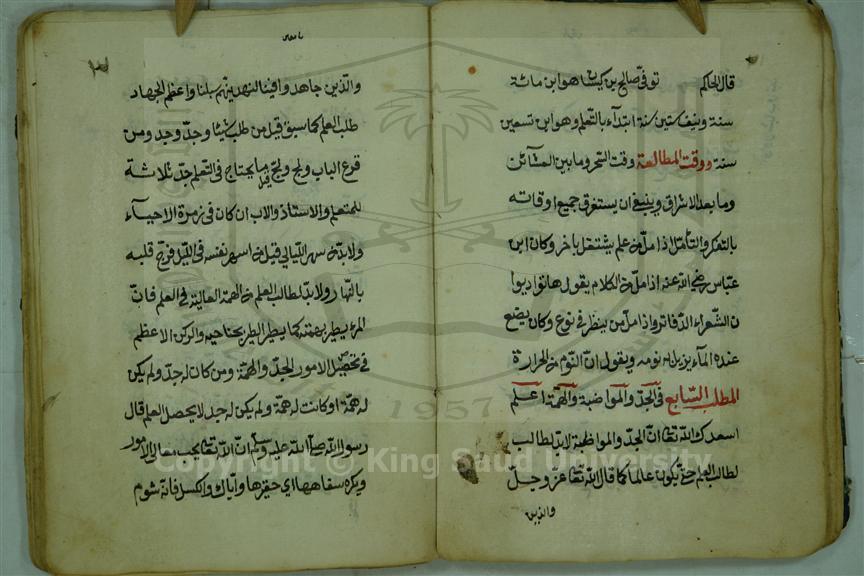 قال الحاكم توفى صالح بن كيسان هو ابن مائة
سنة ونيف ستين سنة ابتدآء بالتعلم وهو ابن تسعين
سنة ووقت المطالعة وقت السحر وما بين العشائين
وما بعد الاشراق وينبغي ان يستغرق جميع اوقاته
بالتفكر والتأمل اذا ملّ من علم يشتغل بآخر وكان ابن
عباس رضي الله عنه اذا ملّ من الكلام يقول هاتوا ديوا
ن الشعراء الدفاتر واذا ملّ من ينظر في نوع وكان يضع
عنده المآء يزيل به نومه ويقول انّ النوم من الحرارة
المطلب السابع في الجدّ والمواضبة والهمة اعلم
اسعدك الله تعا انّ الجدّ والمواظبة لابدّ لطالب
لطالب العلم حتى يكون عالما كما قال الله تعا عزّ وجلّ
والذين
والذين جاهدوا فينا لنهدينهم سبلنا واعظم الجهاد
طلب العلم كما سبق قيل من طلب شيئا وجدّ وجد ومن
قرع الباب ولج ولجّ قيل ما يحتاج في التعلم جدّ ثلاثة
للمتعلم والاستاذ والاب ان كان في زمرة الاحيآء
ولابدّ من سهر الليالي قيل من اسهر نفسه في الليل فرّح قلبه
بالنهار ولابدّ لطالب العلم من الهمة العالية في العلم فانّ
المرء يطير بهمته كما يطير الطير بجناحيه والركن الاعظم
في تحصيل الامور الجدّ والهمة ومن كان له جدّ ولم يكن
له همّة او كانت له همّة ولم يكن له جد لا يحصل العلم قال
رسول الله صلى الله عليه وسلم انّ الله تعا يحب معالي الامور
ويكره سفاهها اي حقيرها واياك والكسل فانه شوم
1957
Copyright © King Saud University